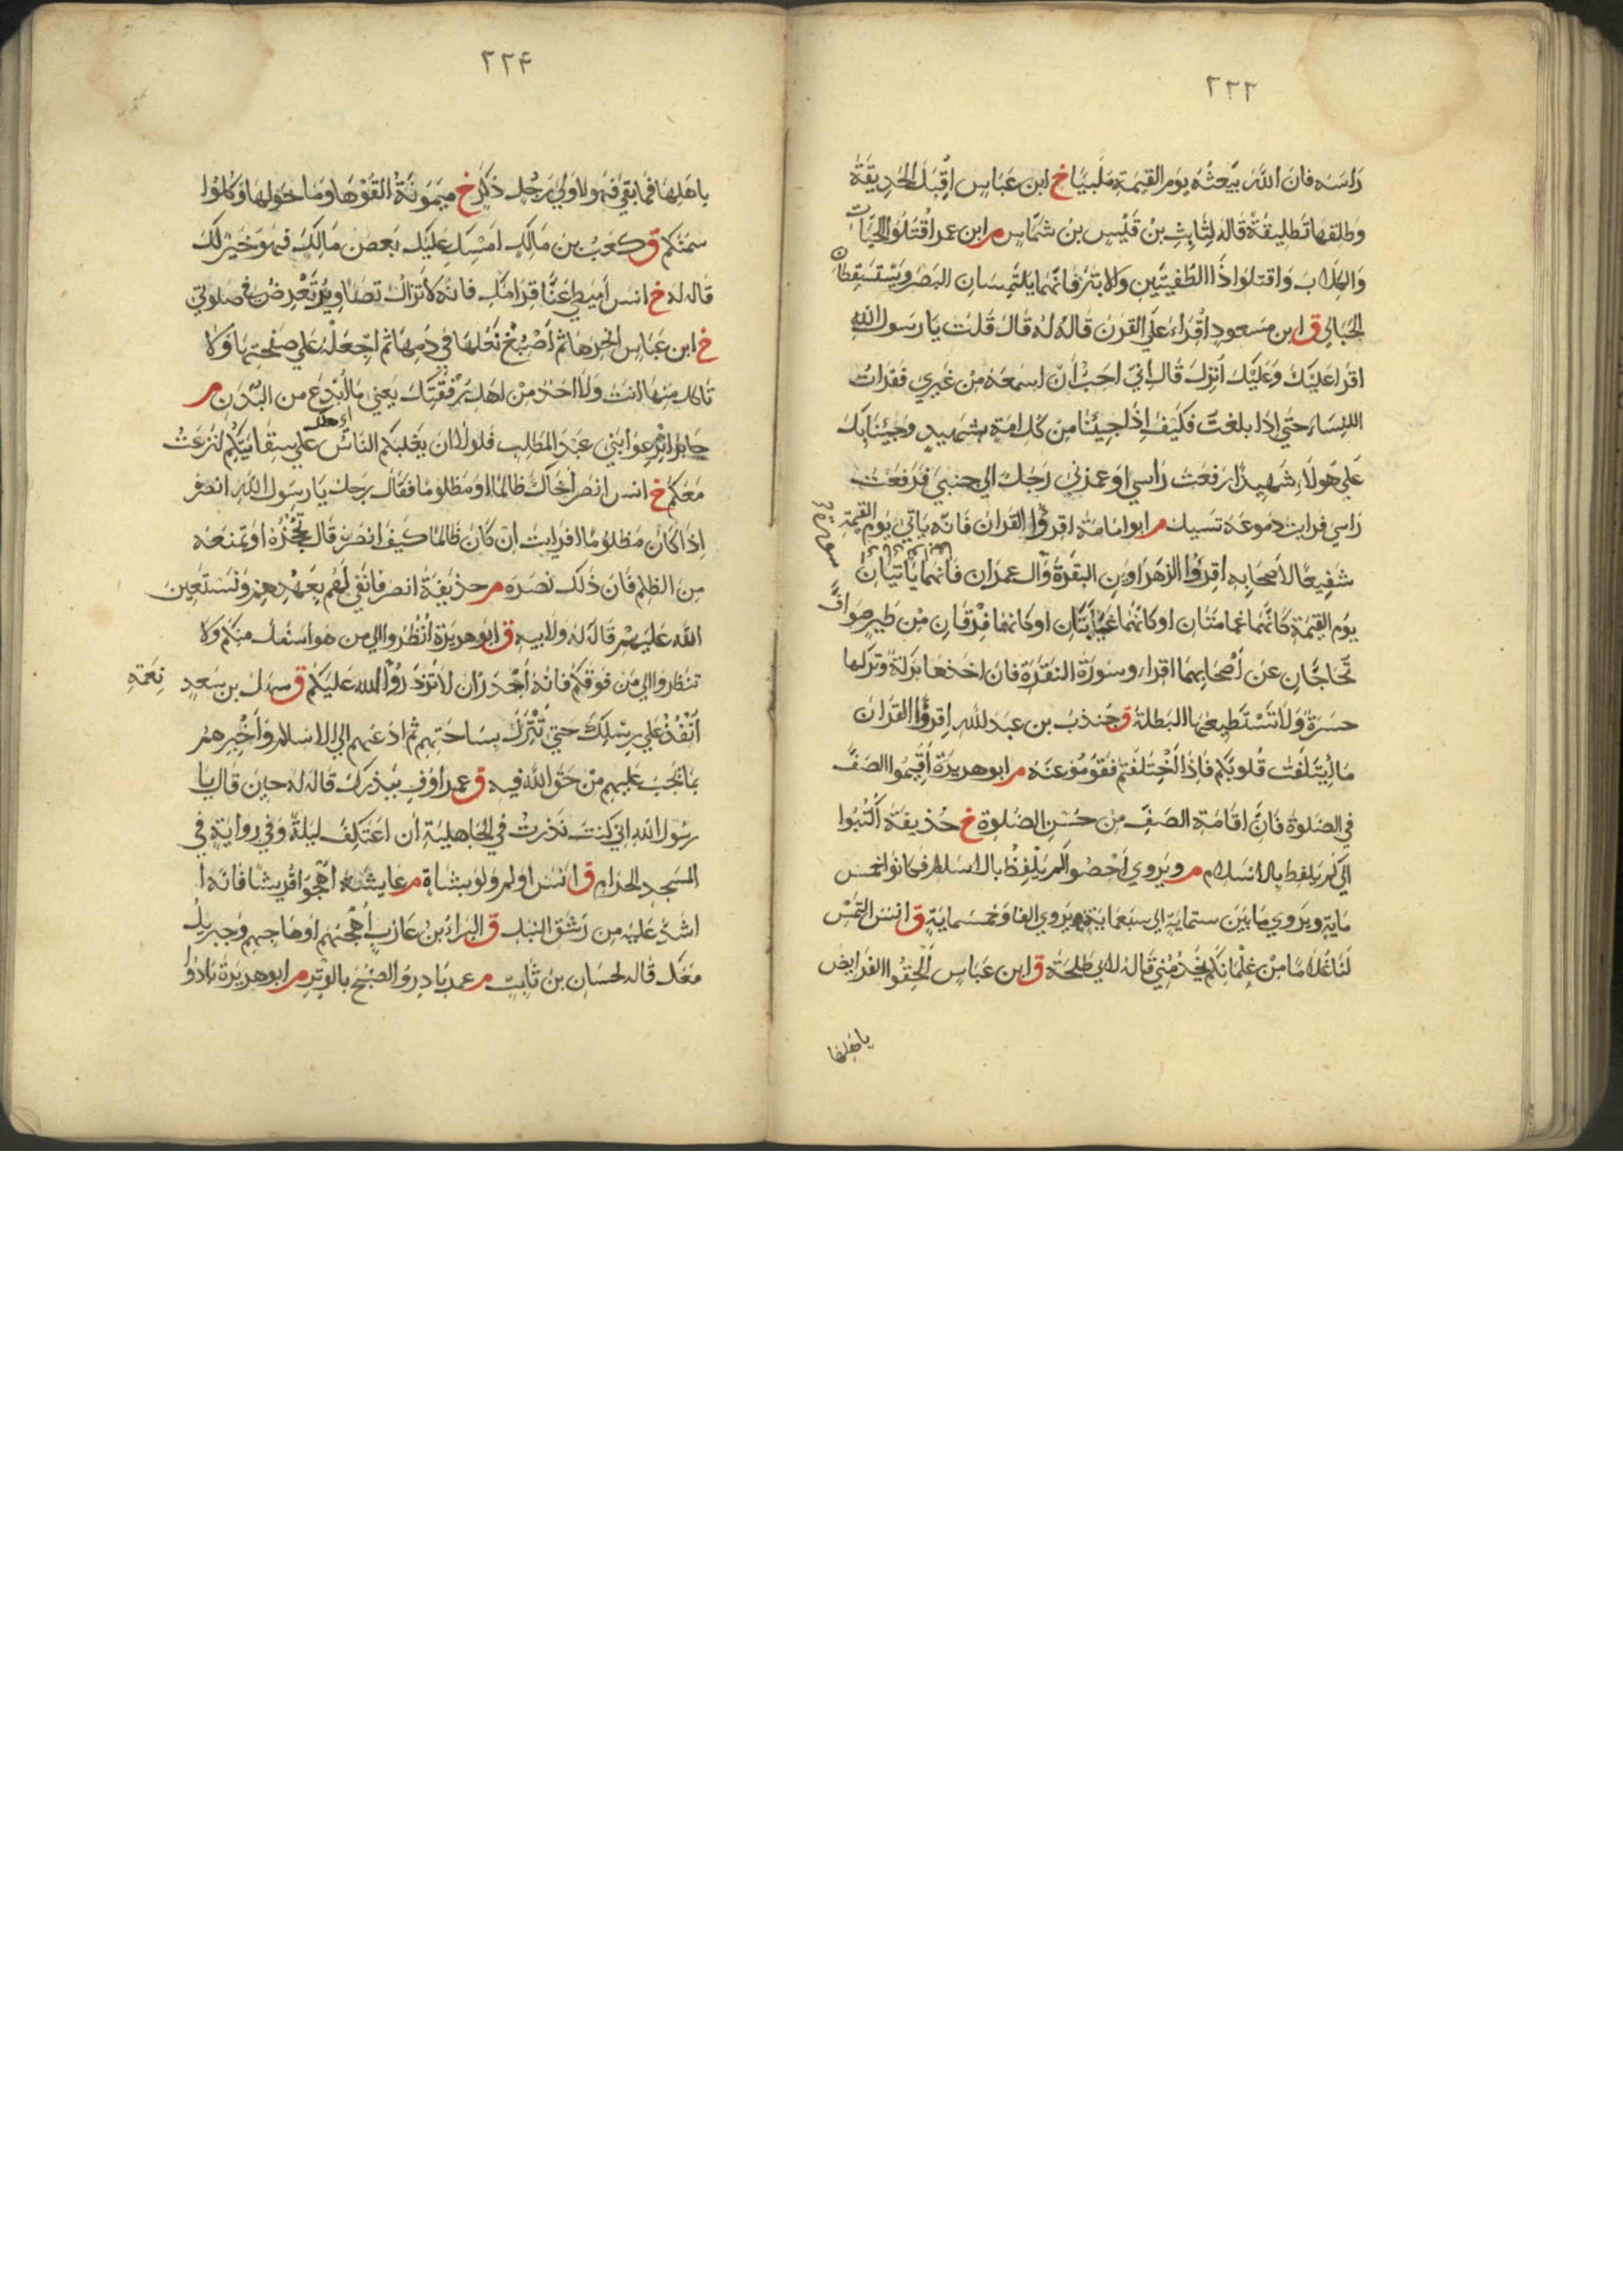 ٢٢٣
راسه فان الله يبعثه يوم القيمة ملبيا خ ابن عباس اقبل الحديقة
وطلقها تطليقة قاله لثابت بن قيس بن شماس م ابن عمر اقتلوا الحيات
والكلاب واقتلوا ذا الطفيتين والابتر فانهما يلتمسان البصر ويستسقطان
الحبالى ق ابن مسعود اقراء علي القرن قاله له قال قلت يا رسول الله
اقرا عليك وعليك انزل قال اني احب ان اسمعه من غيري فقرات
النساء حتي اذا بلغت فكيف اذا جيئنا من كل امة بشهيد وجئنا بك
علي هولاء شهيدا رفعت راسي او غمزني رجل الي جنبي فرفعت
راسي فرايت دموعه تسيل م ابو امامة اقرؤا القران فانه ياتي يوم القيمة
شفيعا لاصحابه اقرؤا الزهراوين البقرة وال عمران فانهما ياتيان
يوم القيمة كانهما غمامتان او كانهما غيايتان او كانهما فرقان من طير صواف
تحاجان عن اصحابهما اقراء وسورة البقرة فان اخذها بركة وتركها
حسرة ولا تستطيعها البطلة ق جندب بن عبد لله اقرؤا القران
ما ايتلفت قلوبكم فاذا اختلفتم فقوموا عنه م ابو هريرة اقيموا الصف
في الصلوة فان اقامة الصف من حسن الصلوة خ حذيفة اكتبوا
الي كم يلفظ بالاسلام م ويروي احصوا لم يلفظ بالاسلام فكانوا خمس
ماية ويروي ما بين ستماية الي سبعماية ويروي الفا وخمسماية ق انس التمس
لنا غلاما من غلمانكم يخدمني قاله لابي طلحة ق ابن عباس الحقوا الفرايض
باهلها
٢٢۴
باهلها فما بقي فهو لاولي رجل ذكر خ ميمونة القوها وما حولها وكلوا
سمنكم ق كعب بن مالك امسك عليك بعض مالك فهو خير لك
قاله له خ انس اميطي عنا قرامك فانه لا تزال تصاويره تعرض في صلوتي
خ ابن عباس انحرها ثم اصبغ نعلها في دمها ثم اجعله علي صفحتها ولا
تاكل منها انت ولا احد من اهل رفقتك يعني ما ابدع من البدن م
جابر انزعوا بني عبد المطلب فلولا ان يغلبكم الناس علي سقايتكم لنزعت
معكم خ انس انصر اخاك ظالما او مظلوما فقال رجل يا رسول الله انصره
اذا كان مظلوما افرايت ان كان ظالما كيف انصره قال تحجزه او تمنعه
من الظلم فان ذلك نصره م حذيفة انصرفا نفي لهم بعهدهم ونستعين
الله عليهم قاله له ولابيه ق ابو هريرة انظروا الي من هو اسفل منكم ولا
تنظروا الي من فوقكم فانه اجدر ان لا تزدروا الله عليكم ق سهل بن سعد
نعمة
انفذ علي رسلك حتي تنزل بساحتهم ثم ادعهم الي الاسلام واخبرهم
بما يجب عليهم من حق الله فيه ق عمر اوف بنذرك قاله له حين قال يا
رسول الله اني كنت نذرت في الجاهلية ان اعتكف ليلة وفي رواية في
المسجد الحرام ق انس اولم ولو بشاة م عايشة اهجوا قريشا فانه ا
اشد عليه من رشق النبل ق البراء بن عازب اهجهم او هاجهم وجبريل
معك قاله لحسان بن ثابت م عمر بادروا الصبح بالوتر م ابو هريرة بادروا